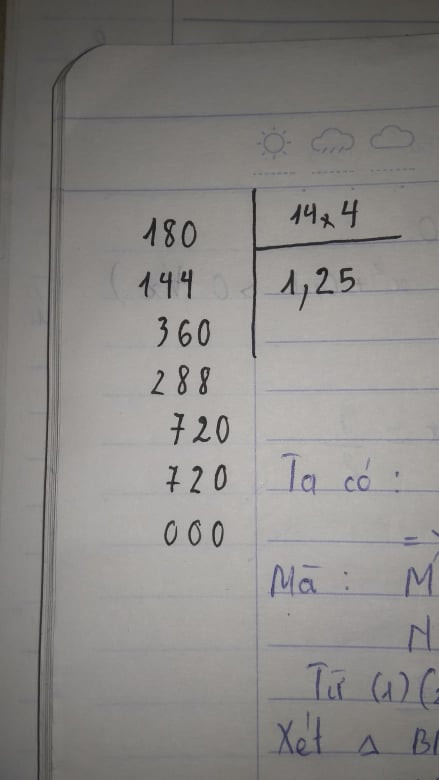 180 14x4
144 1,25
360
288
720
720
000
Ta có :
=
Mà : M
N
Từ (1) (2
Xét Δ BM